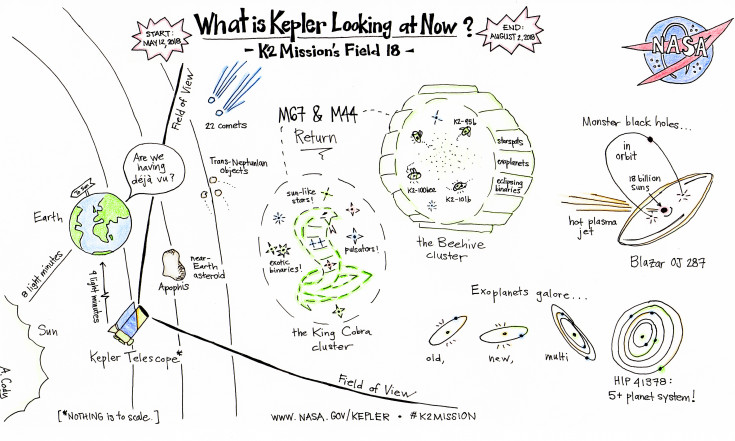 What is Kepler Looking at Now?
- K2 Mission's Field 18 -
START:
MAY 12, 2018
END:
AUGUST 2, 2018
NASA
Field of View
22 comets
Are we
having
déjà vu?
Trans-Neptunian
objects
Earth
8 light minutes
9 light minutes
near-
Earth
asteroid
Apophis
Sun
Kepler Telescope*
A. Cody
[*NOTHING is to scale.]
Field of View
M67 & M44
Return
sun-like
stars!
exotic
binaries!
pulsators!
the King Cobra
cluster
K2-95b
K2-101b
starspots
exoplanets
eclipsing
binaries
the Beehive
cluster
Monster black holes...
in
orbit
18 billion
suns
hot plasma
jet
Blazar OJ 287
Exoplanets galore...
old,
new,
multi
HIP 41378:
5+ planet system!
WWW.NASA.GOV/KEPLER • #K2MISSION